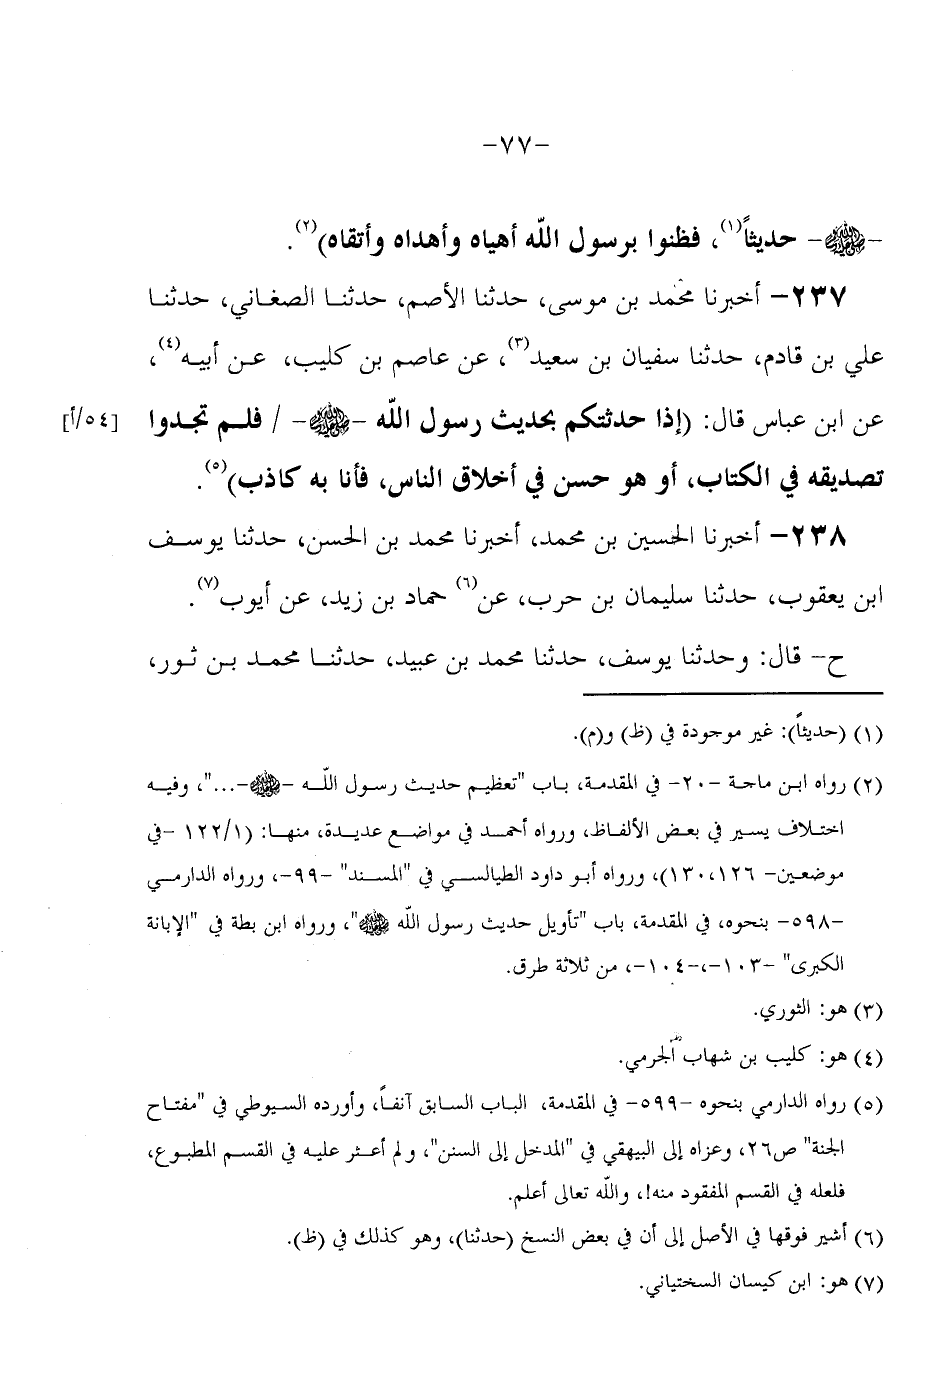 -٧٧-
-ﷺ- حديثاً(١)، فظنوا برسول الله أهياه وأهداه وأتقاه)(٢).
٢٣٧- أخبرنا محمد بن موسى، حدثنا الأصم، حدثنا الصغاني، حدثنا
علي بن قادم، حدثنا سفيان بن سعيد(٣)، عن عاصم بن كليب، عن أبيه(٤)،
عن ابن عباس قال: (إذا حدثتكم بحديث رسول الله -ﷺ- / فلم تجدوا [٥٤/أ]
تصديقه في الكتاب، أو هو حسن في أخلاق الناس، فأنا به كاذب)(٥).
٢٣٨- أخبرنا الحسين بن محمد، أخبرنا محمد بن الحسن، حدثنا يوسف
ابن يعقوب، حدثنا سليمان بن حرب، عن(٦) حماد بن زيد، عن أيوب(٧).
ح- قال: وحدثنا يوسف، حدثنا محمد بن عبيد، حدثنا محمد بن ثور،
(١) (حديثاً): غير موجودة في (ظ) و(م).
(٢) رواه ابن ماجة -٢٠- في المقدمة، باب "تعظيم حديث رسول الله -ﷺ-..."، وفيه
اختلاف يسير في بعض الألفاظ، ورواه أحمد في مواضع عديدة، منها: (١٢٢/١ -في
موضعين- ١٣٠،١٢٦)، ورواه أبو داود الطيالسي في "المسند" -٩٩-، ورواه الدارمي
-٥٩٨- بنحوه، في المقدمة، باب "تأويل حديث رسول الله ﷺ"، ورواه ابن بطة في "الإبانة
الكبرى" -١٠٣-،-١٠٤-، من ثلاثة طرق.
(٣) هو: الثوري.
(٤) هو: كليب بن شهاب الجرمي.
(٥) رواه الدارمي بنحوه -٥٩٩- في المقدمة، الباب السابق آنفاً، وأورده السيوطي في "مفتاح
الجنة" ص٢٦، وعزاه إلى البيهقي في "المدخل إلى السنن"، ولم أعثر عليه في القسم المطبوع،
فلعله في القسم المفقود منه!، والله تعالى أعلم.
(٦) أشير فوقها في الأصل إلى أن في بعض النسخ (حدثنا)، وهو كذلك في (ظ).
(٧) هو: ابن كيسان السختياني.